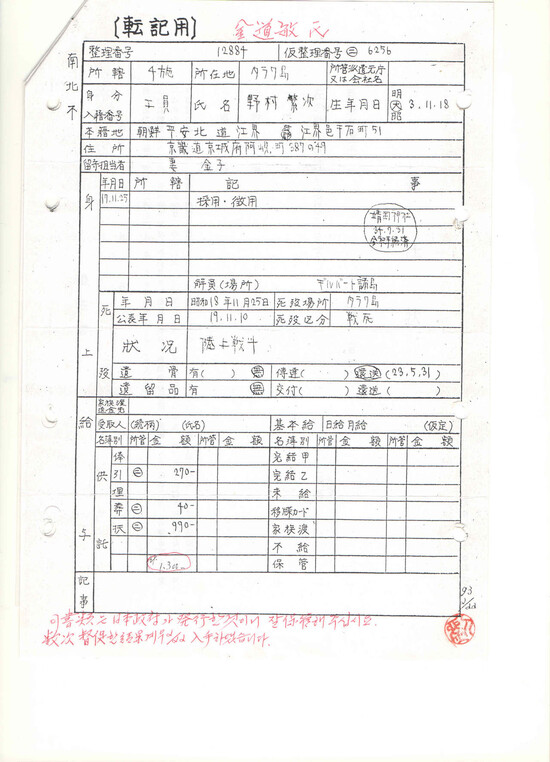 〔転記用〕 金道敏 氏
整理番号 12884 仮整理番号 ㊁ 6256
南北不
所轄 4施 所在地 タラワ島 所管派遣元庁又は会社名
身分 工員 氏名 野村 繁次 生年月日 明大昭 3.11.18
入籍番号
本籍地 朝鮮 平安北道江界 江界邑 町51
住所 京畿道京城府阿峴町387の49
留守担当者 妻 金子
身上
年月日 所轄 記事
17.11.25 採用・徴用
解員(場所) ギルバート諸島
死没
年月日 昭和18年11月25日 死没場所 タラワ島
公表年月日 19.11.10 死没区分 戦死
状況 陸上戦斗
遺骨 有( ) 無 伝達( ) 還送(23.5.31)
遺留品 有 無 交付( ) 還送( )
給与
受取人(続柄)(氏名) 基本給 日給月給 (仮定)
名簿別 所管 金額 所管 金額 名簿別 所管 金額 所管 金額
供託
俸 完給甲
引 ㊁ 270- 完給乙
埋 未給
葬 ㊁ 40- 移牒カード
扶 ㊁ 990- 家族渡
不給
1.300 保管
記事
이 書類는 日本政府가 発行한 것이니 잘 保管해 주십시오.
数次 督促한 結果 入手하였습니다.